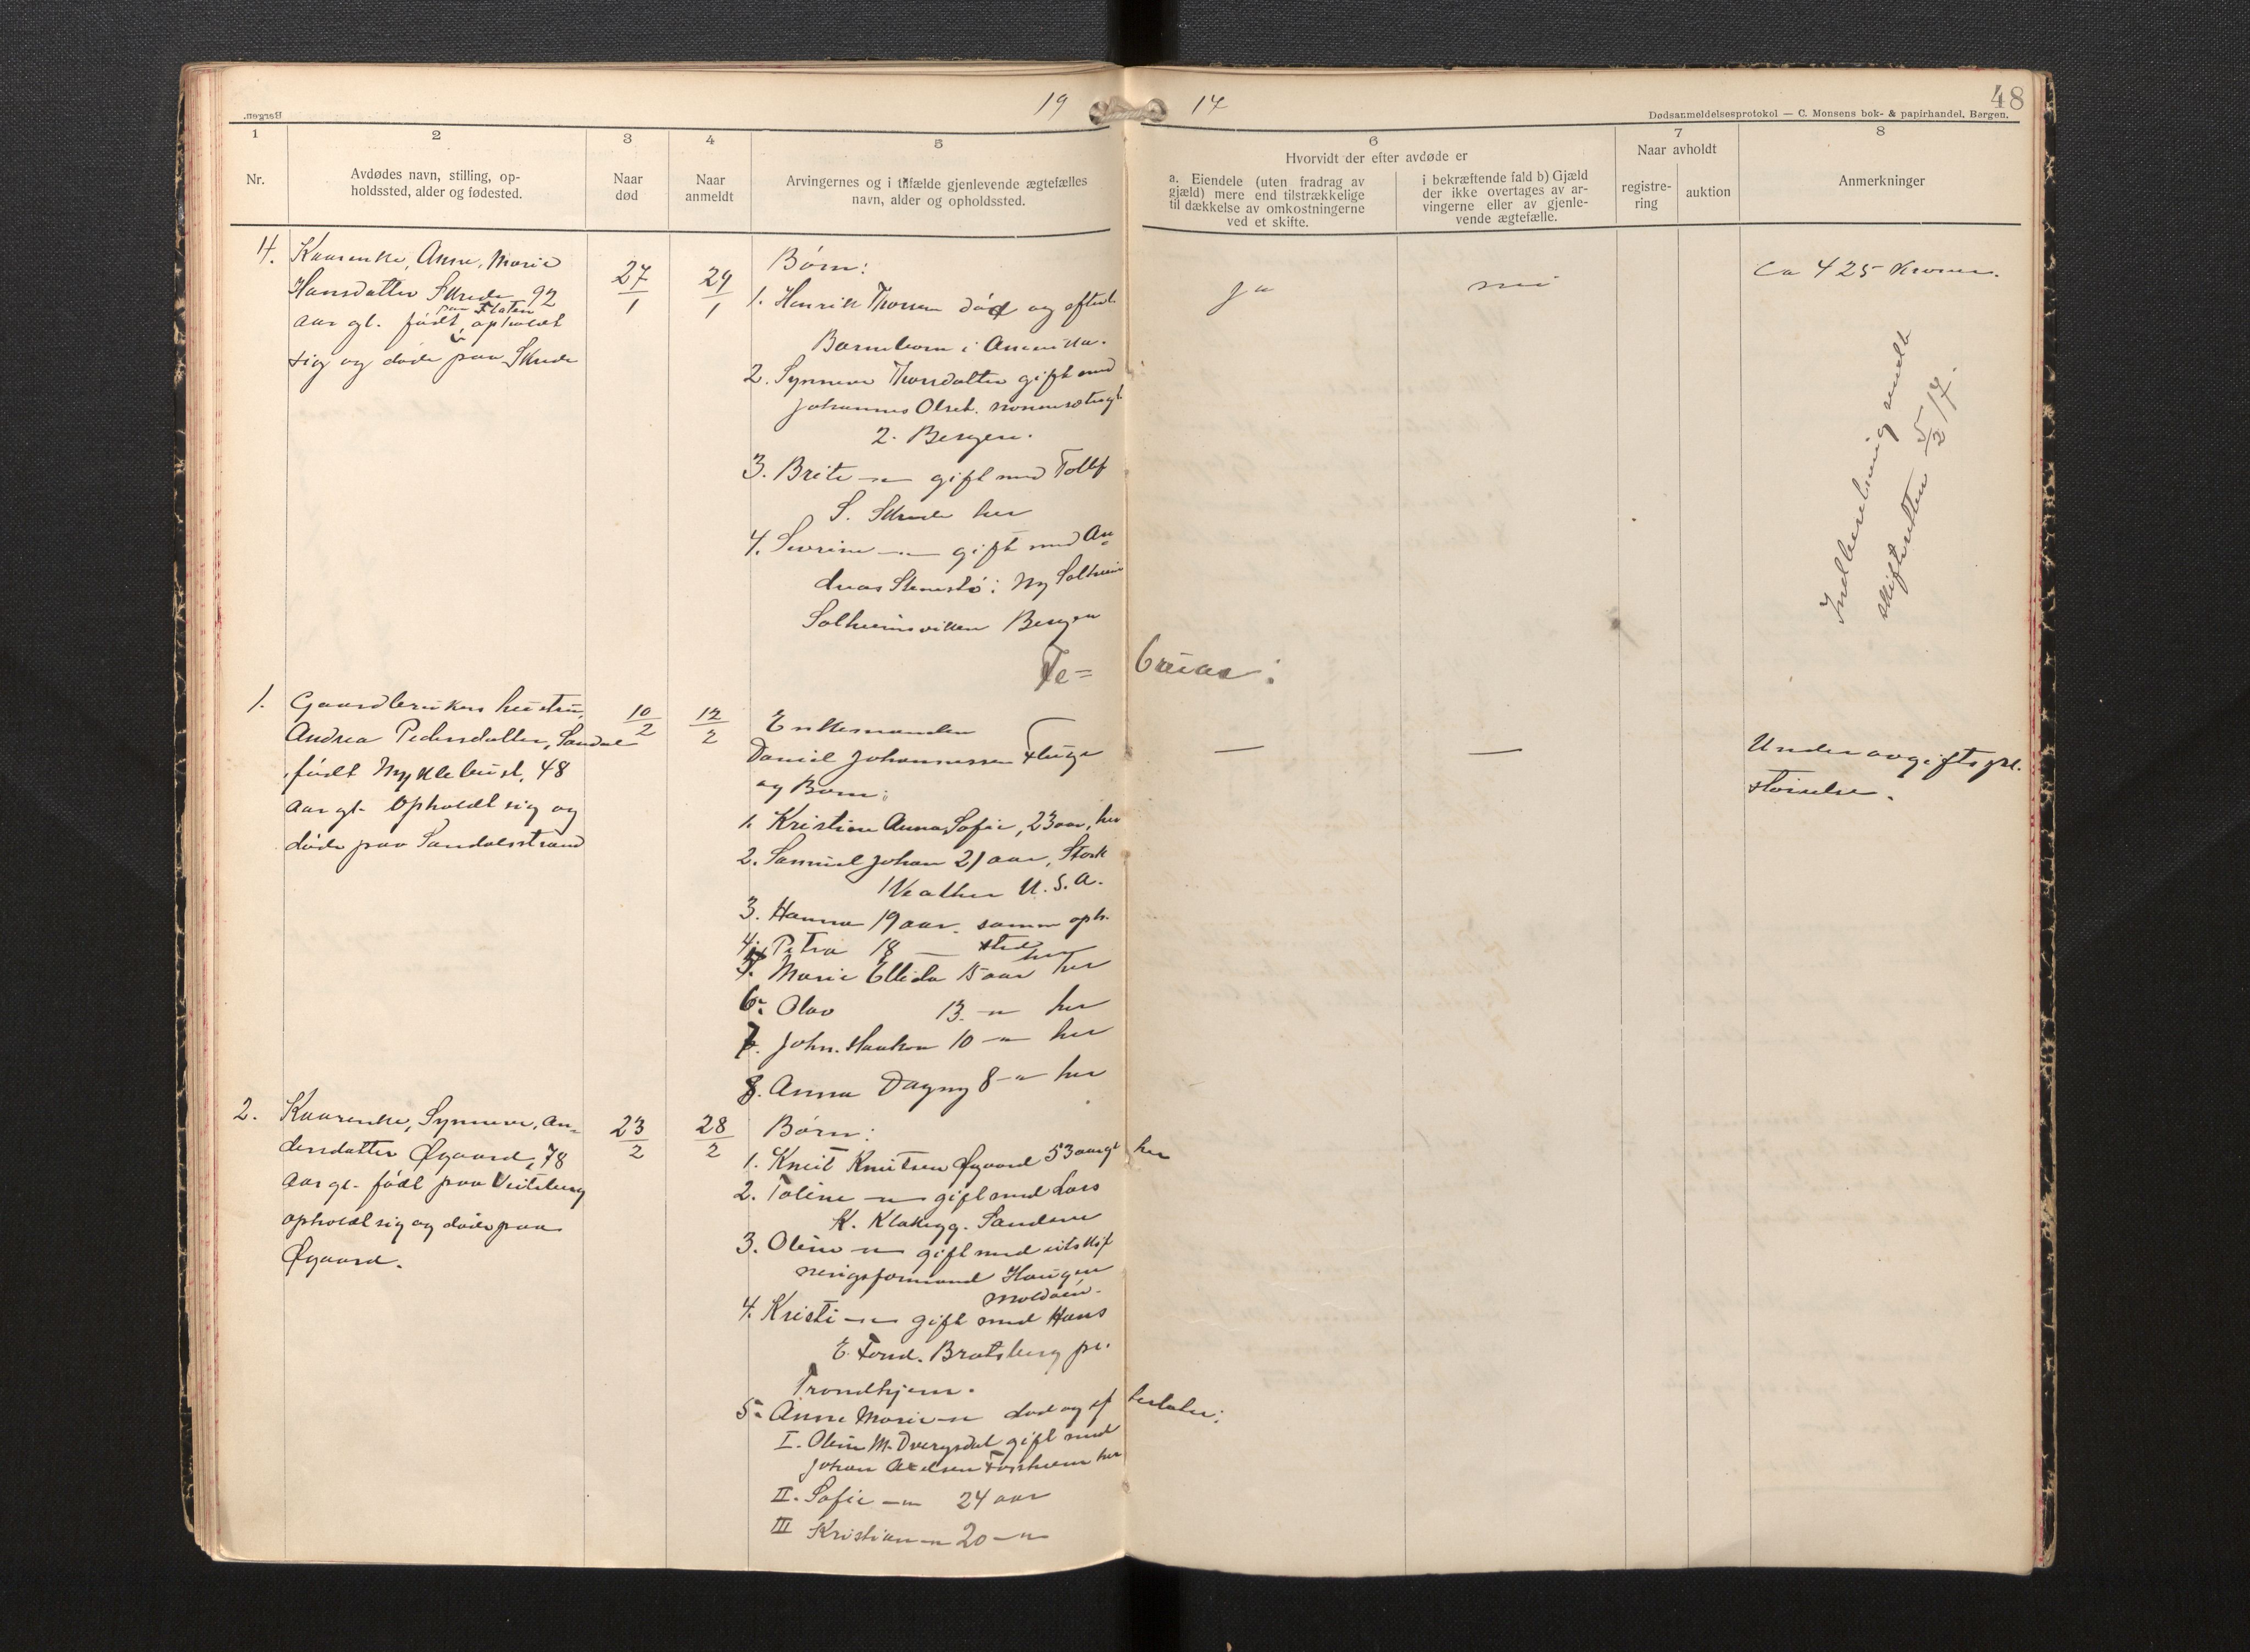 19 17
48
Bergen.
Dødsanmeldelsesprotokol — C. Monsens bok- & papirhandel, Bergen.
1
2
3
4
5
6
7
8
Nr.
Avdødes navn, stilling, op-
holdssted, alder og fødested.
Naar
død
Naar
anmeldt
Arvingernes og i tilfælde gjenlevende ægtefælles
navn, alder og opholdssted.
Hvorvidt der efter avdøde er
a. Eiendele (uten fradrag av
gjæld) mere end tilstrækkelige
til dækkelse av omkostningerne
ved et skifte.
i bekræftende fald b) Gjæld
der ikke overtages av ar-
vingerne eller av gjenle-
vende ægtefælle.
Naar avholdt
registre-
ring
auktion
Anmerkninger
4.
Kaarenke, Anne, Marie
Hansdatter Skrede 92
aar gl. født paa Flaten opholdt
sig og døde paa Skrede
27/1
29/1
Børn:
1. Henrik Thorsen død og efterl.
Barnebørn i Amerika.
2. Synneve Thorsdatter gift med
Johannes Olset.
2. Bergen.
3. Brite —"— gift med Tollf
S. Skrede her
4. Sevrine —"— gift med An=
dreas Stenestø: Ny Solheim
Solheimsviken Bergen
ja
nei
Ca 425 Kroner.
Indberetning sendt
skifteretten 5/2 17.
Fe= bruar:
1.
Gaardbrukers hustru,
Andrea Pedersdatter, Sandal
født Myklebust, 48
aar gl. Opholdt sig og
døde paa Sandalsstrand
10/2
12/2
Enkemanden
Daniel Johannessen Fluge
og Børn:
1. Kristine Anna Sofie, 23 aar, her
2. Samuel Johan 21 aar, Stork
U. S. A.
3. Hanna 19 aar. samme oph.
sted
4. Petra 18 — her
5. Marie Ellida 15 aar her
6. Olav 13 —"— her
7. John. Haakon 10 —"— her
8. Anna Dagny 8 —"— her
— —
Under avgiftspl.
størrelse.
2.
Kaarenke, Synneve, An=
dersdatter Øgaard, 78
aar gl. født paa Veiteberg
opholdt sig og døde paa
Øgaard.
23/2
28/2
Børn:
1. Knut Knutsen Øgaard 53 aar gl her
2. Toline —"— gift med Lars
K. Klakegg. Sandene
3. Oline —"— gift med utskif
ningsformand Haugen
Moldøen.
4. Kristi —"— gift med Hans
E. Fond. Bratsberg pr.
Trondhjem.
5. Anne Marie —"— død og ef terlater:
I. Oline M. Dvergsdal gift med
Johan Axelsen Fossheim her
II. Sofie —"— 24 aar
III Kristian —"— 20 —"—